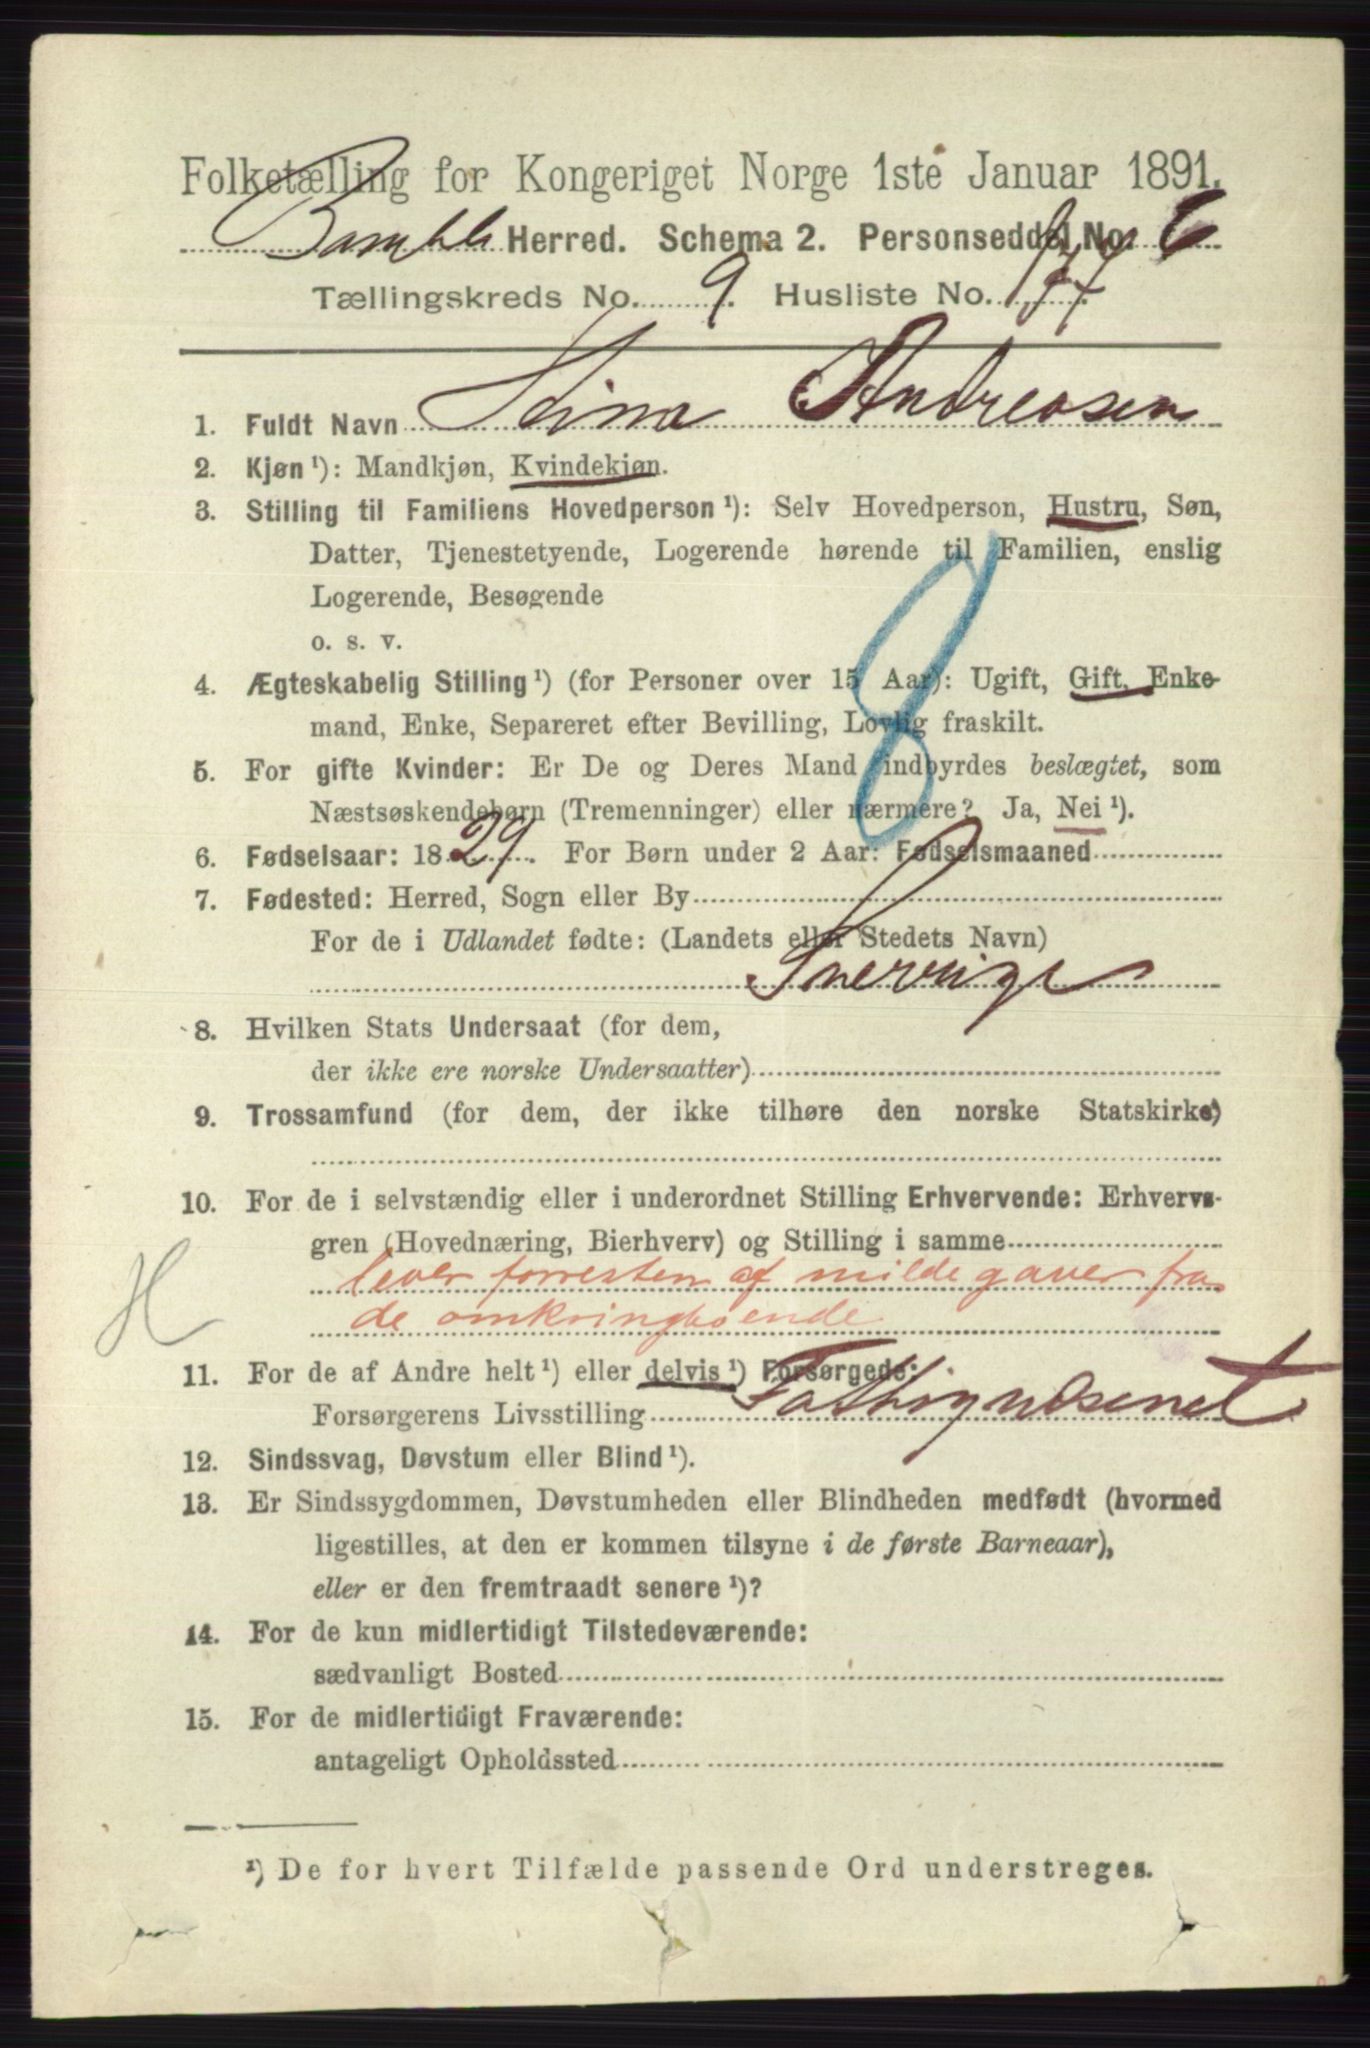 Folketælling for Kongeriget Norge 1ste Januar 1891.
Bamble Herred. Schema 2. Personseddel No. 6
Tællingskreds No. 9. Husliste No.
1. Fuldt Navn Andreasen
2. Kjøn ¹): Mandkjøn, Kvindekjøn.
3. Stilling til Familiens Hovedperson ¹): Selv Hovedperson, Hustru, Søn,
Datter, Tjenestetyende, Logerende hørende til Familien, enslig
Logerende, Besøgende
o. s. v.
4. Ægteskabelig Stilling ¹) (for Personer over 15 Aar): Ugift, Gift, Enke-
mand, Enke, Separeret efter Bevilling, Lovlig fraskilt.
5. For gifte Kvinder: Er De og Deres Mand indbyrdes beslægtet, som
Næstsøskendebørn (Tremenninger) eller nærmere? Ja, Nei ¹).
8
6. Fødselsaar: 1829. For Børn under 2 Aar: Fødselsmaaned
7. Fødested: Herred, Sogn eller By
For de i Udlandet fødte: (Landets eller Stedets Navn)
Sverrige
8. Hvilken Stats Undersaat (for dem,
der ikke ere norske Undersaatter)
9. Trossamfund (for dem, der ikke tilhøre den norske Statskirke)
10. For de i selvstændig eller i underordnet Stilling Erhvervende: Erhvervs-
gren (Hovednæring, Bierhverv) og Stilling i samme
lever forresten af milde gaver fra
H de omkringboende
11. For de af Andre helt ¹) eller delvis ¹) Forsørgede:
Forsørgerens Livsstilling Fattigvæsenet
12. Sindssvag, Døvstum eller Blind ¹).
13. Er Sindssygdommen, Døvstumheden eller Blindheden medfødt (hvormed
ligestilles, at den er kommen tilsyne i de første Barneaar),
eller er den fremtraadt senere ¹)?
14. For de kun midlertidigt Tilstedeværende:
sædvanligt Bosted
15. For de midlertidigt Fraværende:
antageligt Opholdssted
¹) De for hvert Tilfælde passende Ord understreges.